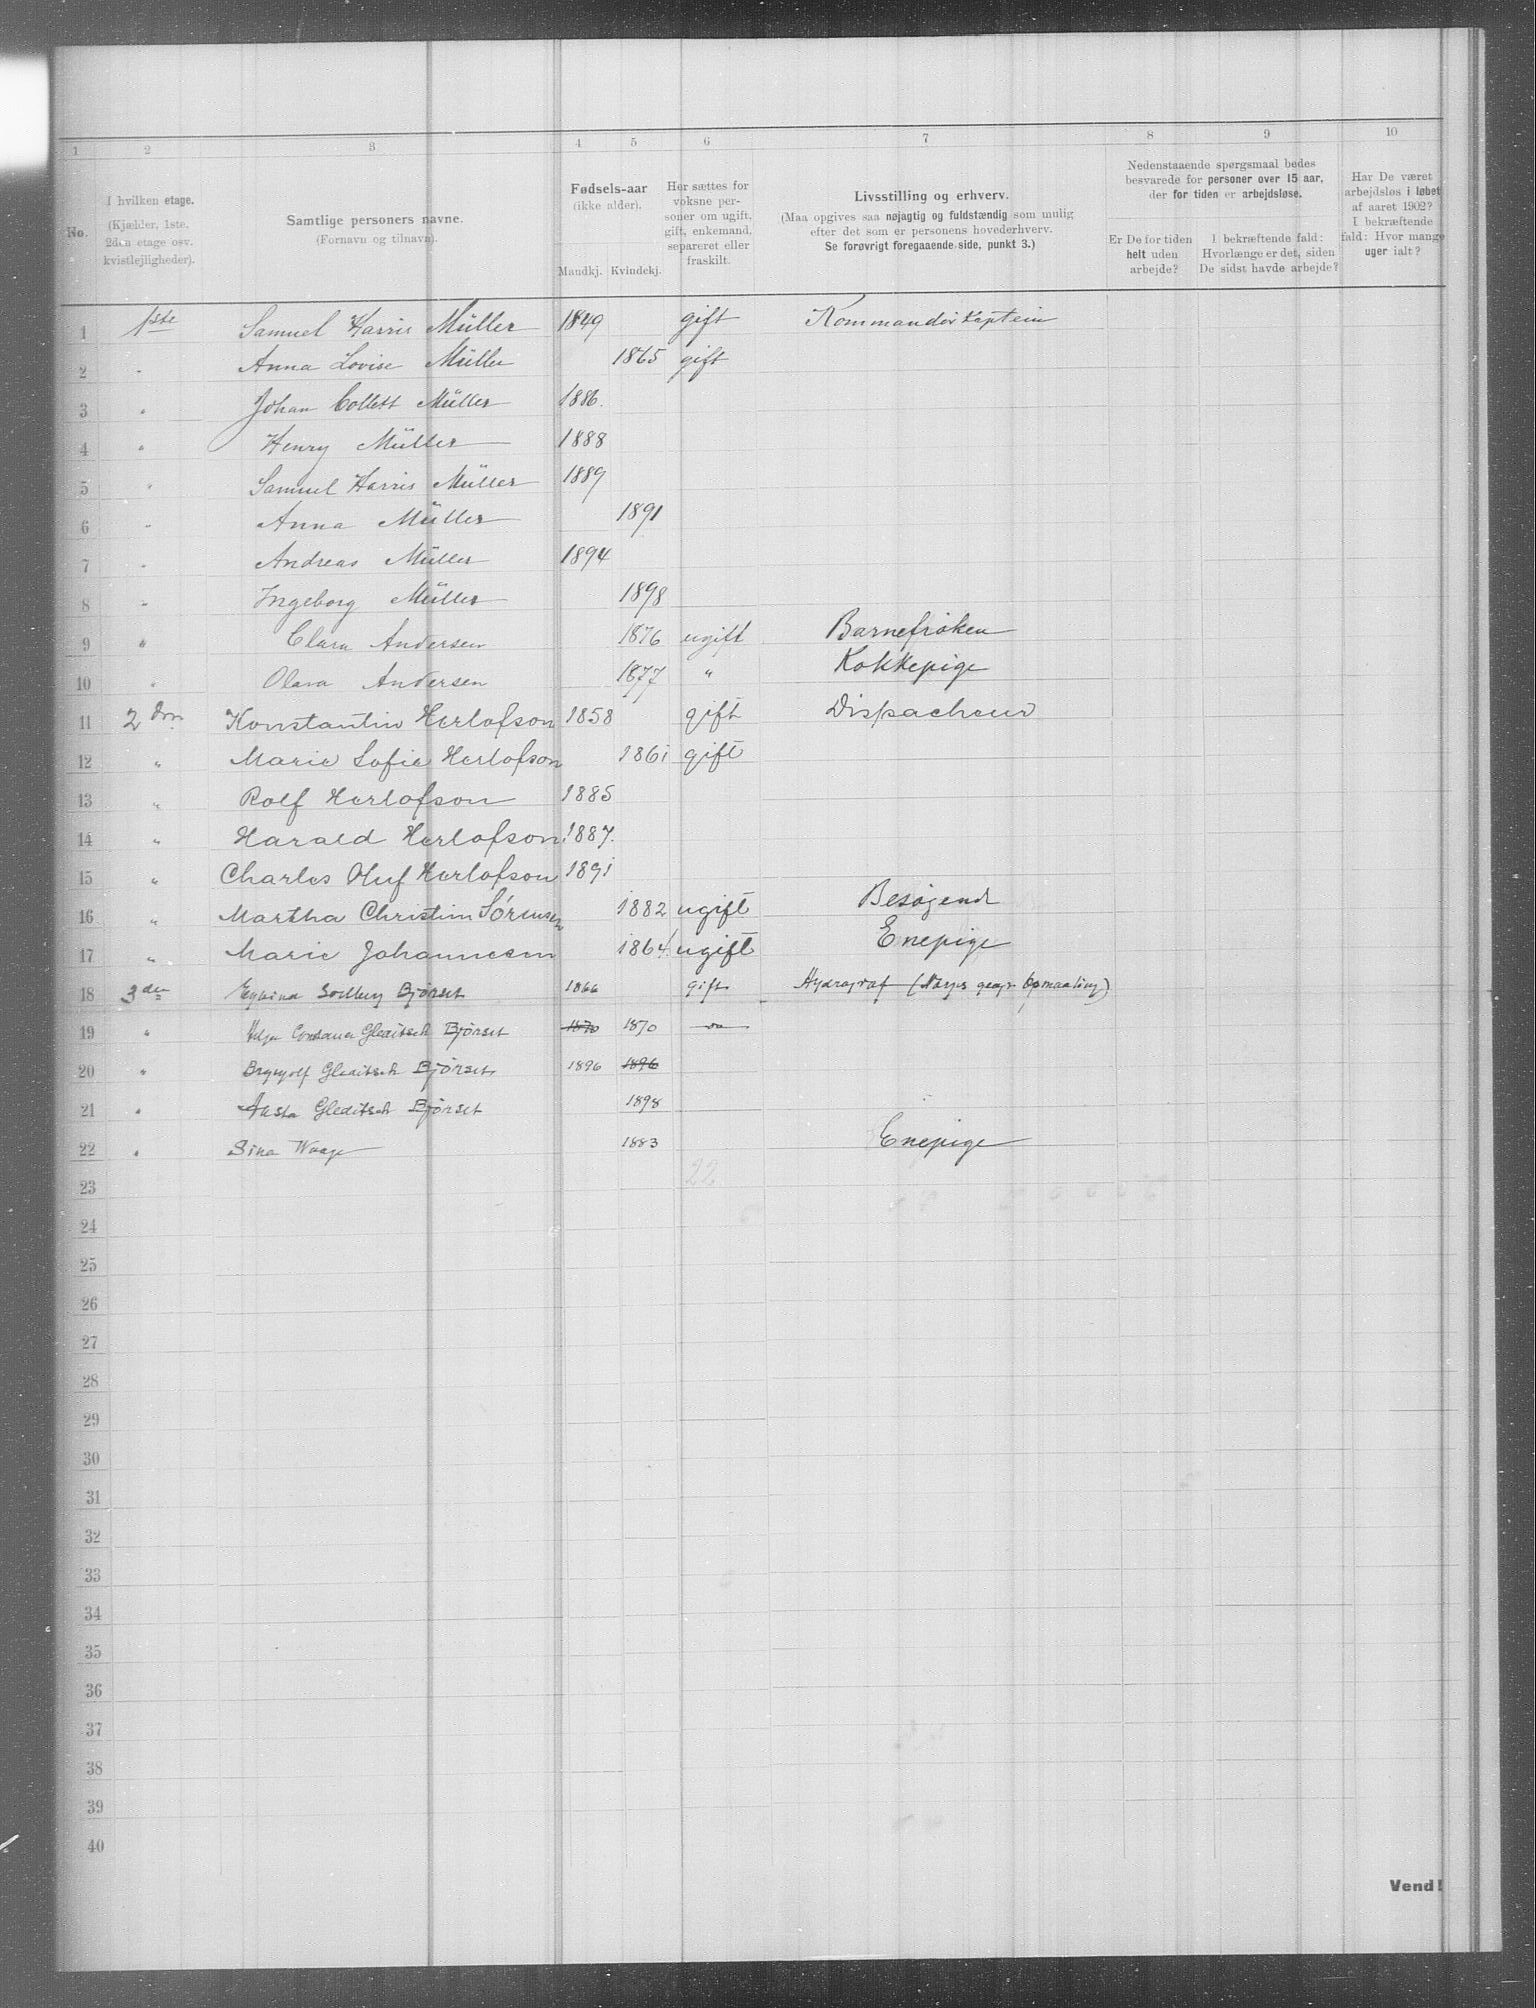 1 2 3 4 5 6 7 8 9 10
No.
I hvilken etage.
(Kjælder, 1ste.
2den etage osv.
kvistlejligheder).
Samtlige personers navne.
(Fornavn og tilnavn).
Fødsels-aar
(ikke alder).
Mandkj. Kvindekj.
Her sættes for
voksne per-
soner om ugift,
gift, enkemand,
separeret eller
fraskilt.
Livsstilling og erhverv.
(Maa opgives saa nøjagtig og fuldstændig som mulig
efter det som er personens hovederhverv.
Se forøvrigt foregaaende side, punkt 3.)
Nedenstaaende spørgsmaal bedes
besvarede for personer over 15 aar,
der for tiden er arbejdsløse.
Er De for tiden
helt uden
arbejde?
I bekræftende fald:
Hvorlænge er det, siden
De sidst havde arbejde?
Har De været
arbejdsløs i løbet
af aaret 1902?
I bekræftende
fald: Hvor mange
uger ialt?
1 1ste Samuel Harris Müller 1849 gift Kommandørkaptein
2 " Anna Lovise Müller 1865 gift
3 " Johan Collett Müller 1886.
4 " Henry Müller 1888
5 " Samuel Harris Müller 1889
6 " Anna Müller 1891
7 " Andreas Müller 1894
8 " Ingeborg Müller 1898
9 " Clara Andersen 1876 ugift Barnefrøken
10 " Olava Andersen 1877 " Kokkepige
11 2den Konstantin Herlofson 1858 gift Dispacheur
12 " Marie Sofie Herlofson 1861 gift
13 " Rolf Herlofson 1885
14 " Harald Herlofson 1887.
15 " Charles Oluf Herlofson 1891
16 " Martha Christine Sørensen 1882 ugift Besøgende
17 " Marie Johannesen 1864 ugift Enepige
18 3die Bjørset 1866 gift Hydrograf (Norges geogr Opmaaling)
19 " Gleditsch Bjørset 1870 1870
20 " Brynjolf Gleditsch Bjørset 1896 1896
21 " Aasta Gleditsch Bjørset 1898
22 " Sina Waage 1883 Enepige
22
23
24
25
26
27
28
29
30
31
32
33
34
35
36
37
38
39
40
Vend!